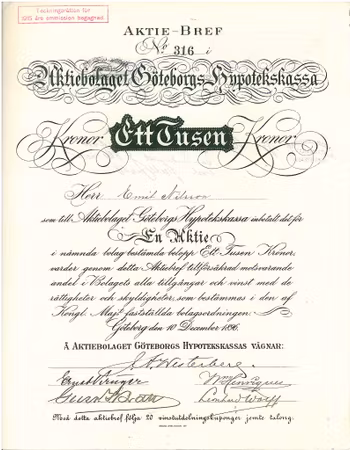 Teckningsrätten för
1915 års emmission begagnad.
AKTIE-BREF
No 316 i
Aktiebolaget Göteborgs Hypotekskassa
Kronor Ett Tusen Kronor
Herr Emil Nilsson
som till Aktiebolaget Göteborgs Hypotekskassa inbetalt det för
En Aktie
i nämnda bolag bestämda belopp Ett Tusen Kronor,
varder genom detta Aktiebref tillförsäkrad motsvarande
andel i Bolagets alla tillgångar och vinst med de
rättigheter och skyldigheter, som bestämmas i den af
Kongl. Maj:t fastställda bolagsordningen.
Göteborg den 10 December 1896.
Å AKTIEBOLAGET GÖTEBORGS HYPOTEKSKASSAS VÄGNAR:
J. A. Westerberg.
Ernst Krüger
Wm Henriques
Leonard Wolff
Med detta aktiebref följa 20 vinstutdelningskuponger jemte talong.